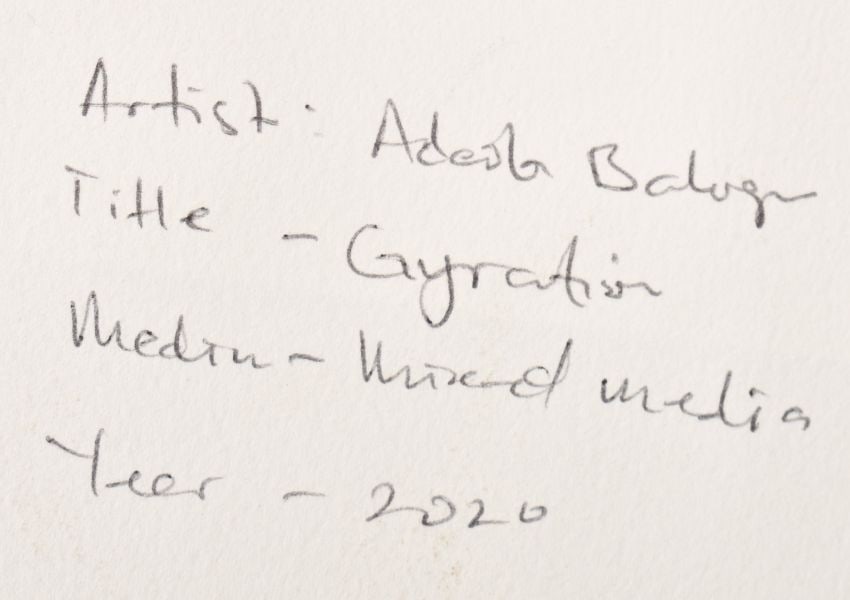 Artist: Adeola Balogun
Title - Gyration
Medium - Mixed media
Year - 2020